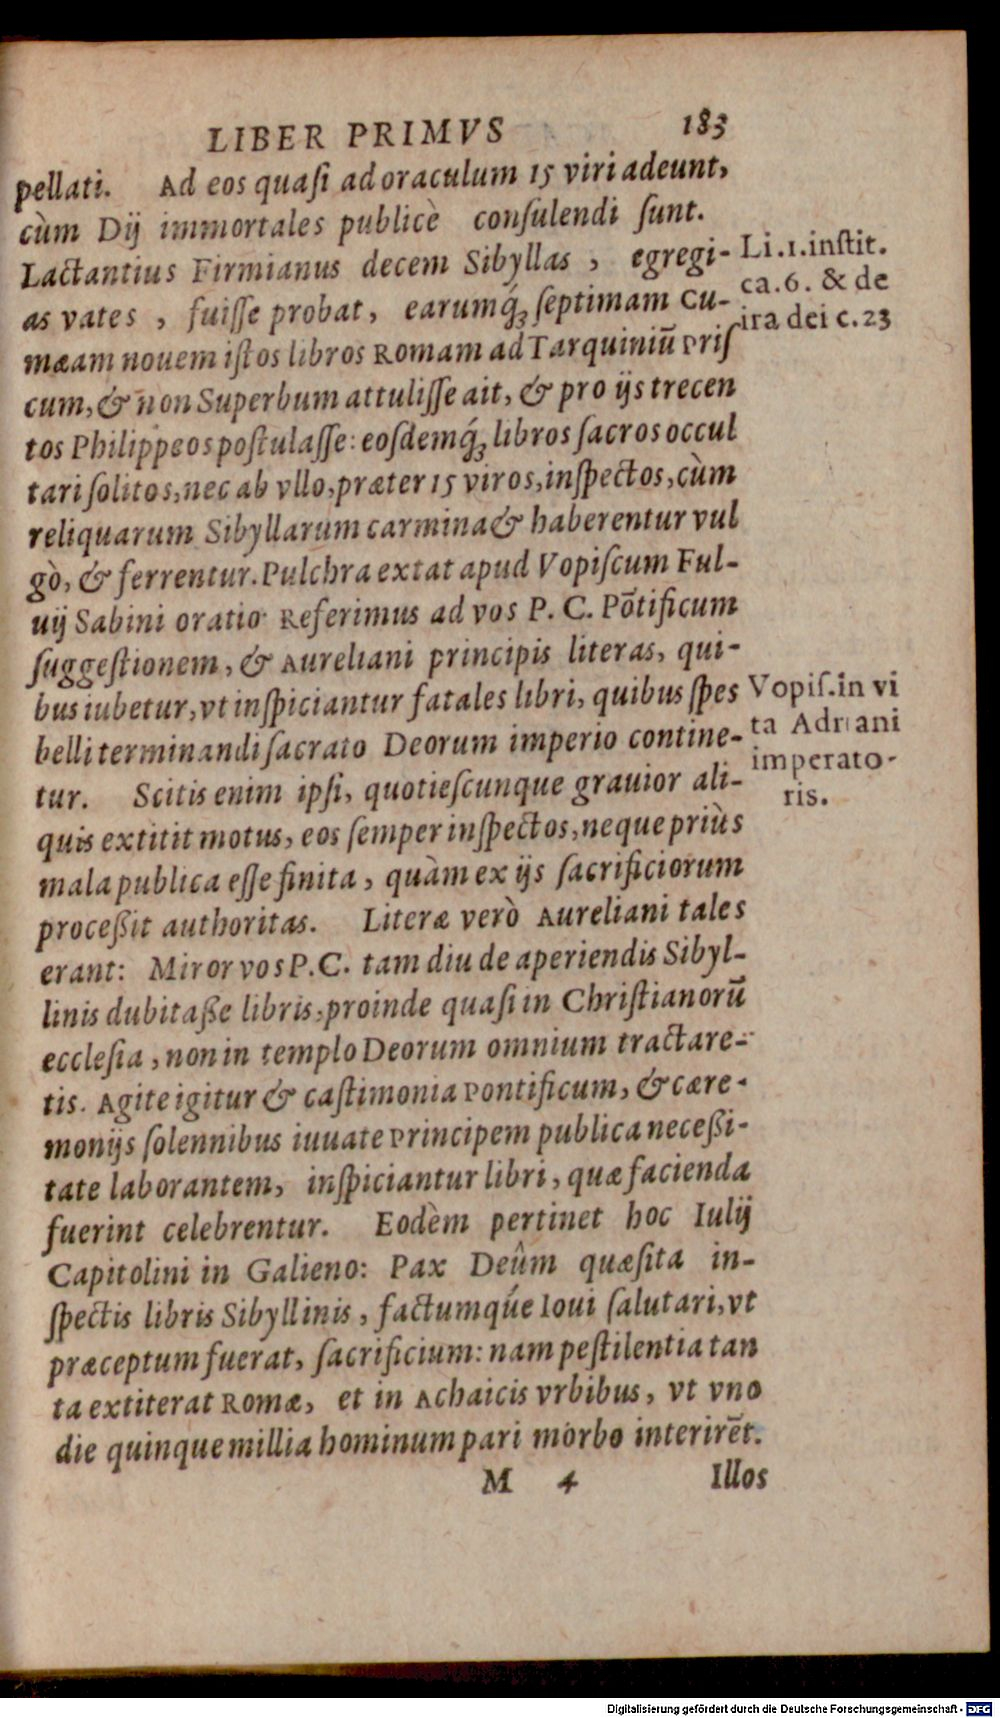 LIBER PRIMVS 183
pellati. Ad eos quaſi ad oraculum 15 viri adeunt,
cùm Dij immortales publicè conſulendi ſunt.
Lactantius Firmianus decem Sibyllas , egregi-
as vates , fuiſſe probat, earumq́ꝫ ſeptimam Cu-
mæam nouem iſtos libros Romam ad Tarquiniū Priſ
cum, & non Superbum attuliſſe ait, & pro ijs trecen
tos Philippeos poſtulaſſe: eoſdemq́ꝫ libros ſacros occul
tari ſolitos, nec ab vllo, præter 15 viros, inſpectos, cùm
reliquarum Sibyllarum carmina & haberentur vul
gò, & ferrentur. Pulchra extat apud Vopiſcum Ful-
uij Sabini oratio Referimus ad vos P. C. Pōtificum
ſuggeſtionem, & Aureliani principis literas, qui-
bus iubetur, vt inſpiciantur fatales libri, quibus ſpes
belli terminandi ſacrato Deorum imperio contine-
tur. Scitis enim ipſi, quotieſcunque grauior ali-
quis extitit motus, eos ſemper inſpectos, neque priùs
mala publica eſſe finita, quàm ex ijs ſacrificiorum
proceßit authoritas. Literæ verò Aureliani tales
erant: Miror vos P.C. tam diu de aperiendis Sibyl-
linis dubitaße libris, proinde quaſi in Chriſtianorū
eccleſia, non in templo Deorum omnium tractare-
tis. Agite igitur & caſtimonia Pontificum, & cære-
monijs ſolennibus iuuate Principem publica neceßi-
tate laborantem, inſpiciantur libri, quæ facienda
fuerint celebrentur. Eodèm pertinet hoc Iulij
Capitolini in Galieno: Pax Deûm quæſita in-
ſpectis libris Sibyllinis, factumq́ue Ioui ſalutari, vt
præceptum fuerat, ſacrificium: nam peſtilentia tan
ta extiterat Romæ, et in Achaicis vrbibus, vt vno
die quinque millia hominum pari morbo interirēt.
M 4 Illos
Li.1.inſtit.
ca.6. & de
ira dei c.23
Vopiſ.in vi
ta Adriani
imperato-
ris.
Digitalisierung gefördert durch die Deutsche Forschungsgemeinschaft - DFG